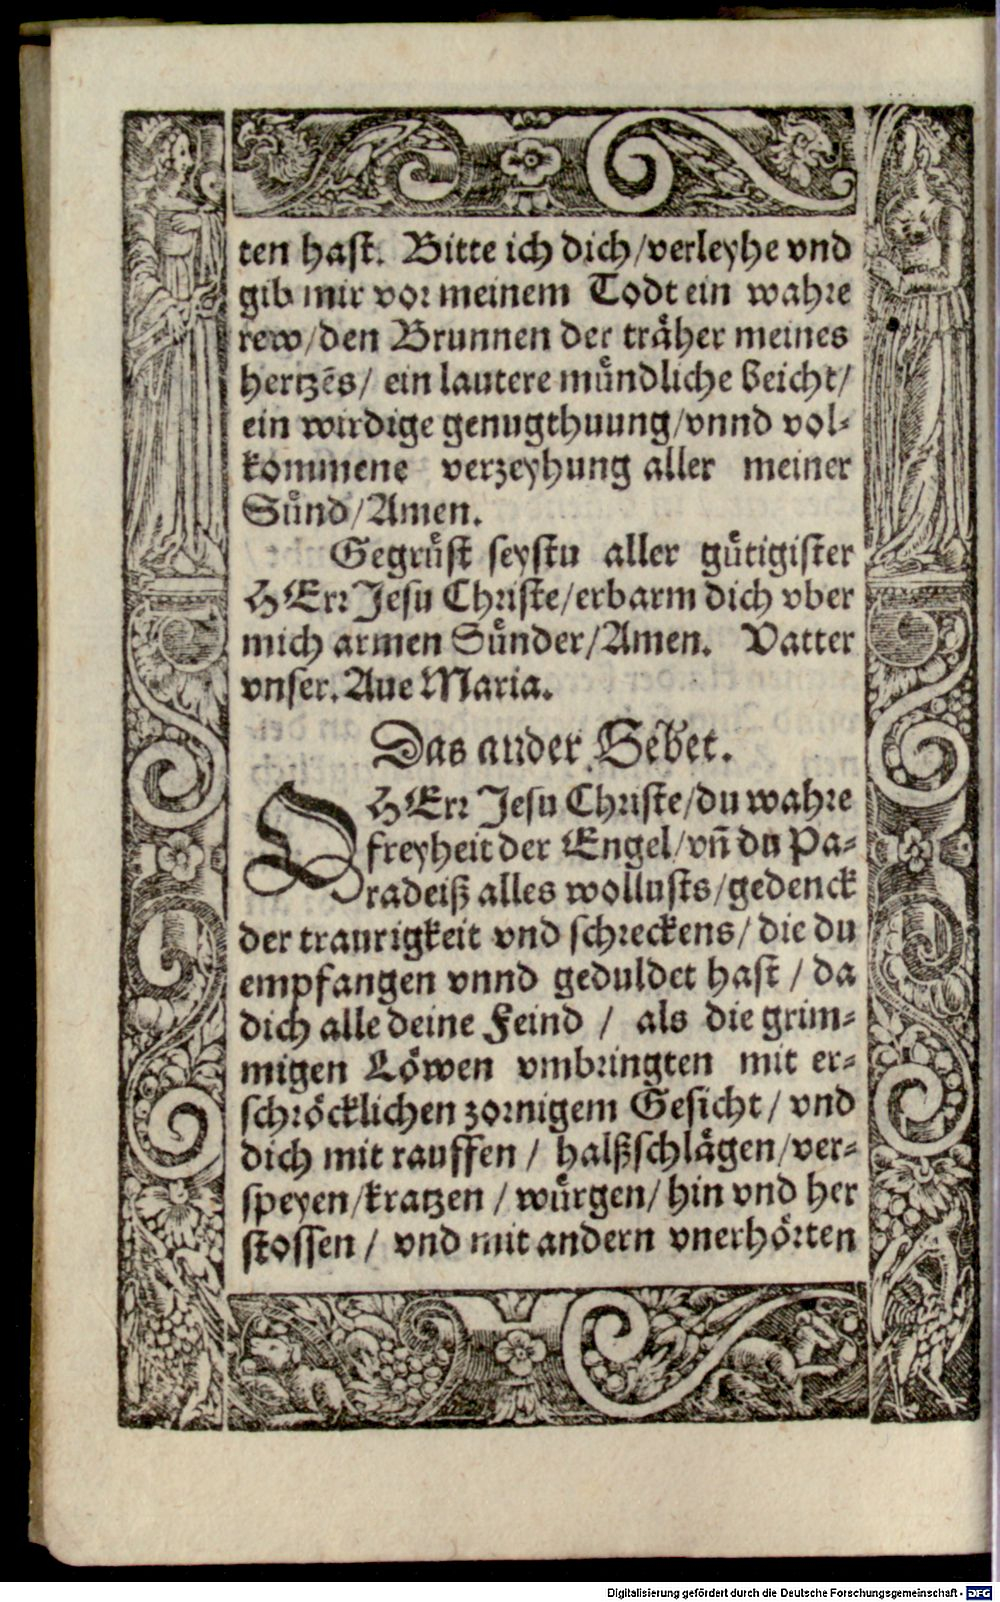 ten hast. Bitte ich dich/verleyhe vnd
gib mir vor meinem Todt ein wahre
rew/den Brunnen der träher meines
hertzēs/ ein lautere mündliche beicht/
ein wirdige genugthuung/vnnd vol-
kommene verzeyhung aller meiner
Sünd/Amen.
Gegrüst seystu aller gütigister
HErr Jesu Christe/erbarm dich vber
mich armen Sünder/Amen. Vatter
vnser. Aue Maria.
Das ander Gebet.
O HErr Jesu Christe/du wahre
freyheit der Engel/vn̄ du Pa-
radeiß alles wollusts/gedenck
der traurigkeit vnd schreckens/die du
empfangen vnnd geduldet hast / da
dich alle deine Feind / als die grim-
migen Löwen vmbringten mit er-
schröcklichen zornigem Gesicht/ vnd
dich mit rauffen / halßschlägen/ver-
speyen/kratzen / würgen/ hin vnd her
stossen / vnd mit andern vnerhörten
Digitalisierung gefördert durch die Deutsche Forschungsgemeinschaft - DFG